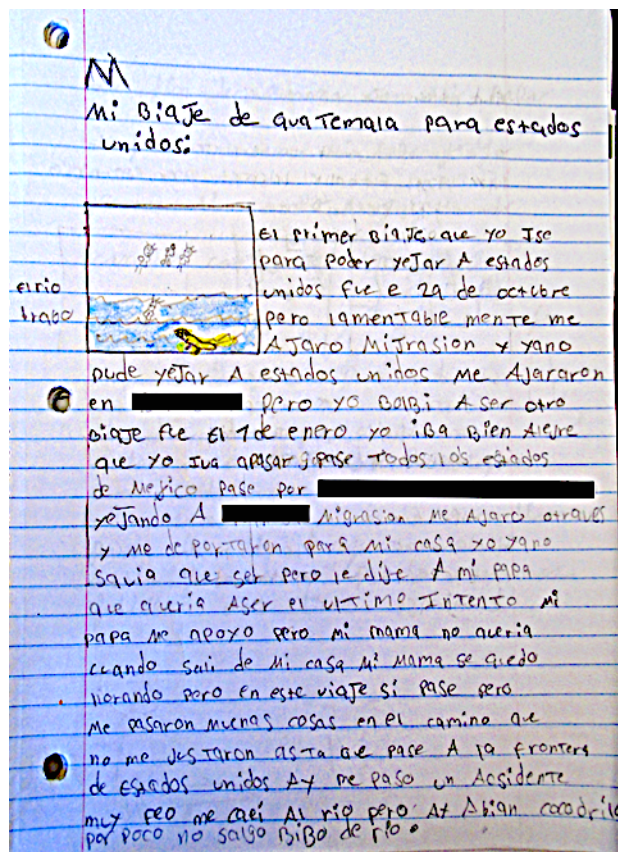 M
Mi Biaje de guatemala para estados
unidos:
El primer Biaje que yo Ise
para poder yejar A estados
unidos fue e 29 de octubre
pero lamentable mente me
AJaro MiJrasion y yano
el rio
brabo
pude yeJar A estados unidos me AJararon
en pero yo Bolbi A ser otro
Biaje fue El 1 de enero yo iBa Bien Alegre
que yo Iva apasar y pase todos los estados
de Mejico pase por
yeJando A Migrasion me AJaro otraves
y me deportaron para mi casa yo yano
Savia que ser pero le dije A mi papa
que queria Aser el ultimo Intento mi
papa me apoyo pero mi mama no queria
cuando sali de mi casa mi mama se quedo
llorando pero en este viaje si pase pero
me pasaron muchas cosas en el camino que
no me JusTaron asta que pase A la frontera
de estados unidos Ay me paso un Acsidente
muy feo me caei Al rio pero Ay Abian cocodrilo
por poco no salgo BiBo de rio.